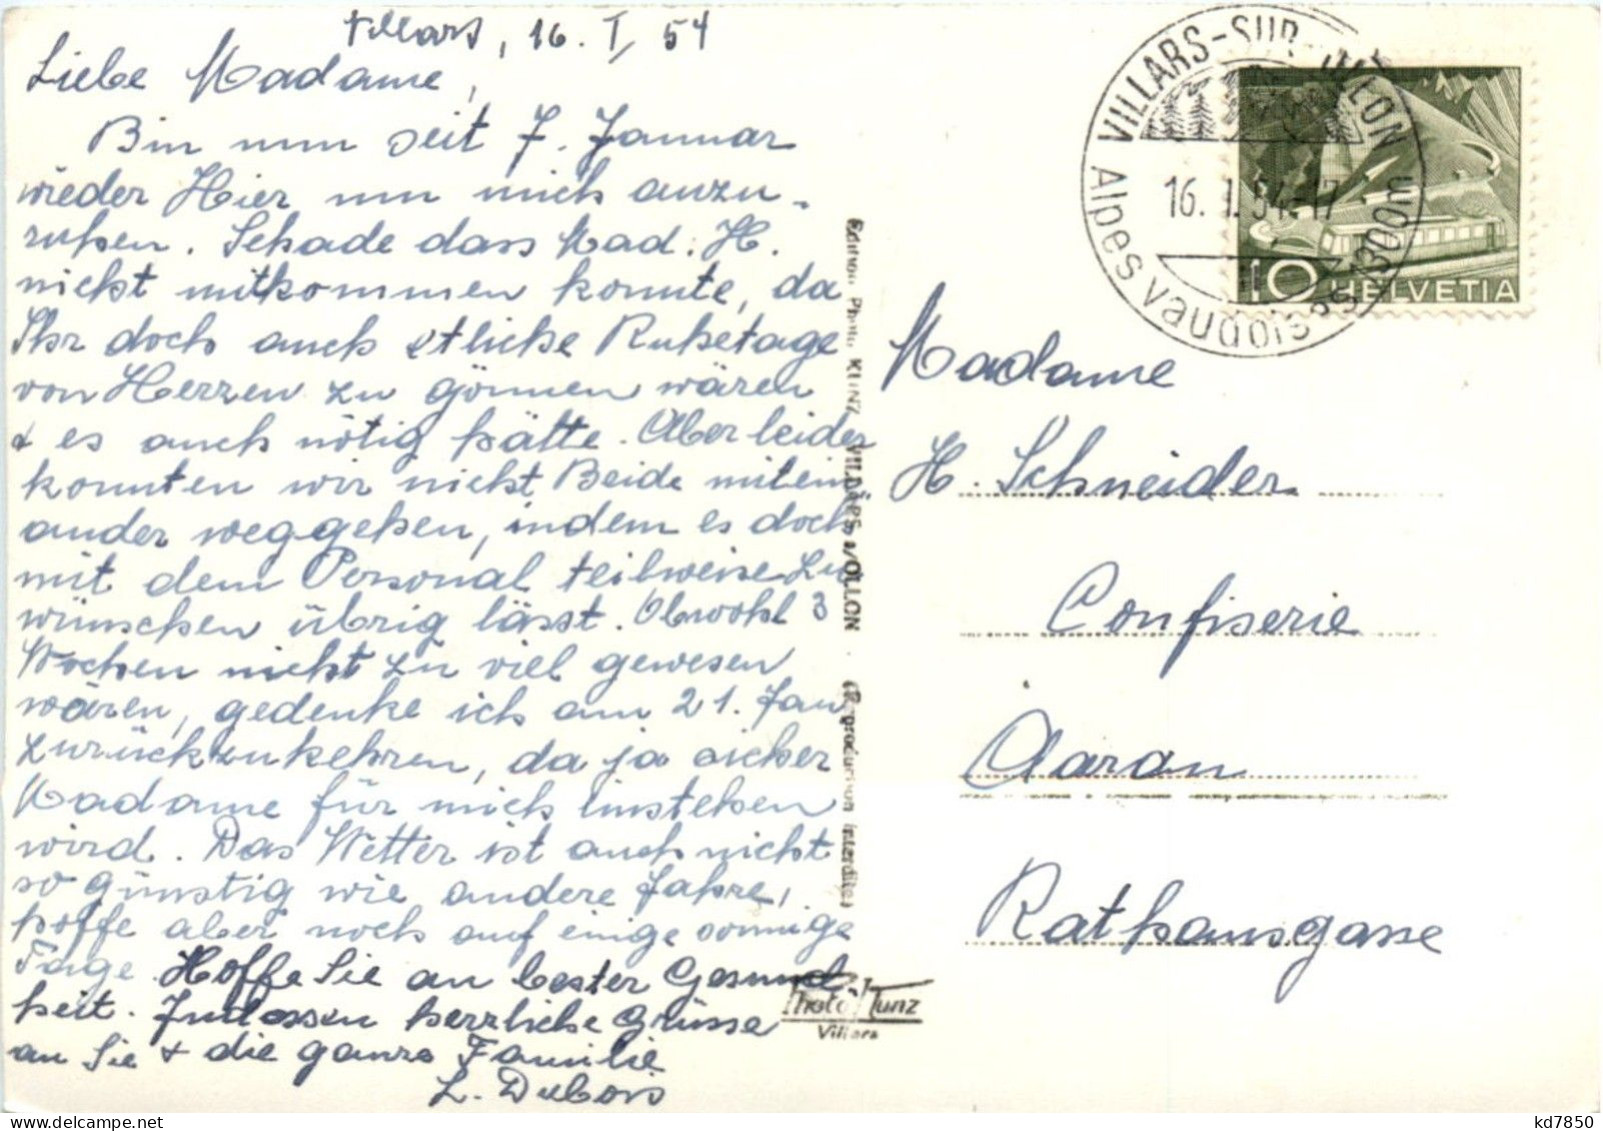 Villars, 16. I. 54
Liebe Madame,
Bin nun seit 7. Januar
wieder Hier um mich auszu-
ruhen. Schade dass Mad. H.
nicht mitkommen konnte, da
Ihr doch auch etliche Ruhetage
von Herzen zu gönnen wären
& es auch nötig hätte. Aber leider
konnten wir nicht Beide mitein
ander weggehen, indem es doch
mit dem Personal teilweise zu
wünschen übrig lässt. Obwohl 3
Wochen nicht zu viel gewesen
wären, gedenke ich am 21. Jan
zurückzukehren, da ja sicher
Madame für mich einstehen
wird. Das Wetter ist auch nicht
so günstig wie andere Jahre,
hoffe aber noch auf einige sonnige
Tage. Hoffe Sie an bester Gesund
heit. Indessen herzliche Grüsse
an Sie & die ganze Familie
L. Dubois
Edition Photo KUNZ, VILLARS s/OLLON. (Reproduction interdite)
Photo Kunz
Villars
VILLARS-SUR-OLLON
16. I. 54.-17
Alpes vaudoises 1300m
10 HELVETIA
Madame
H. Schneider
Confiserie
Aarau
Rathausgasse
kd7850